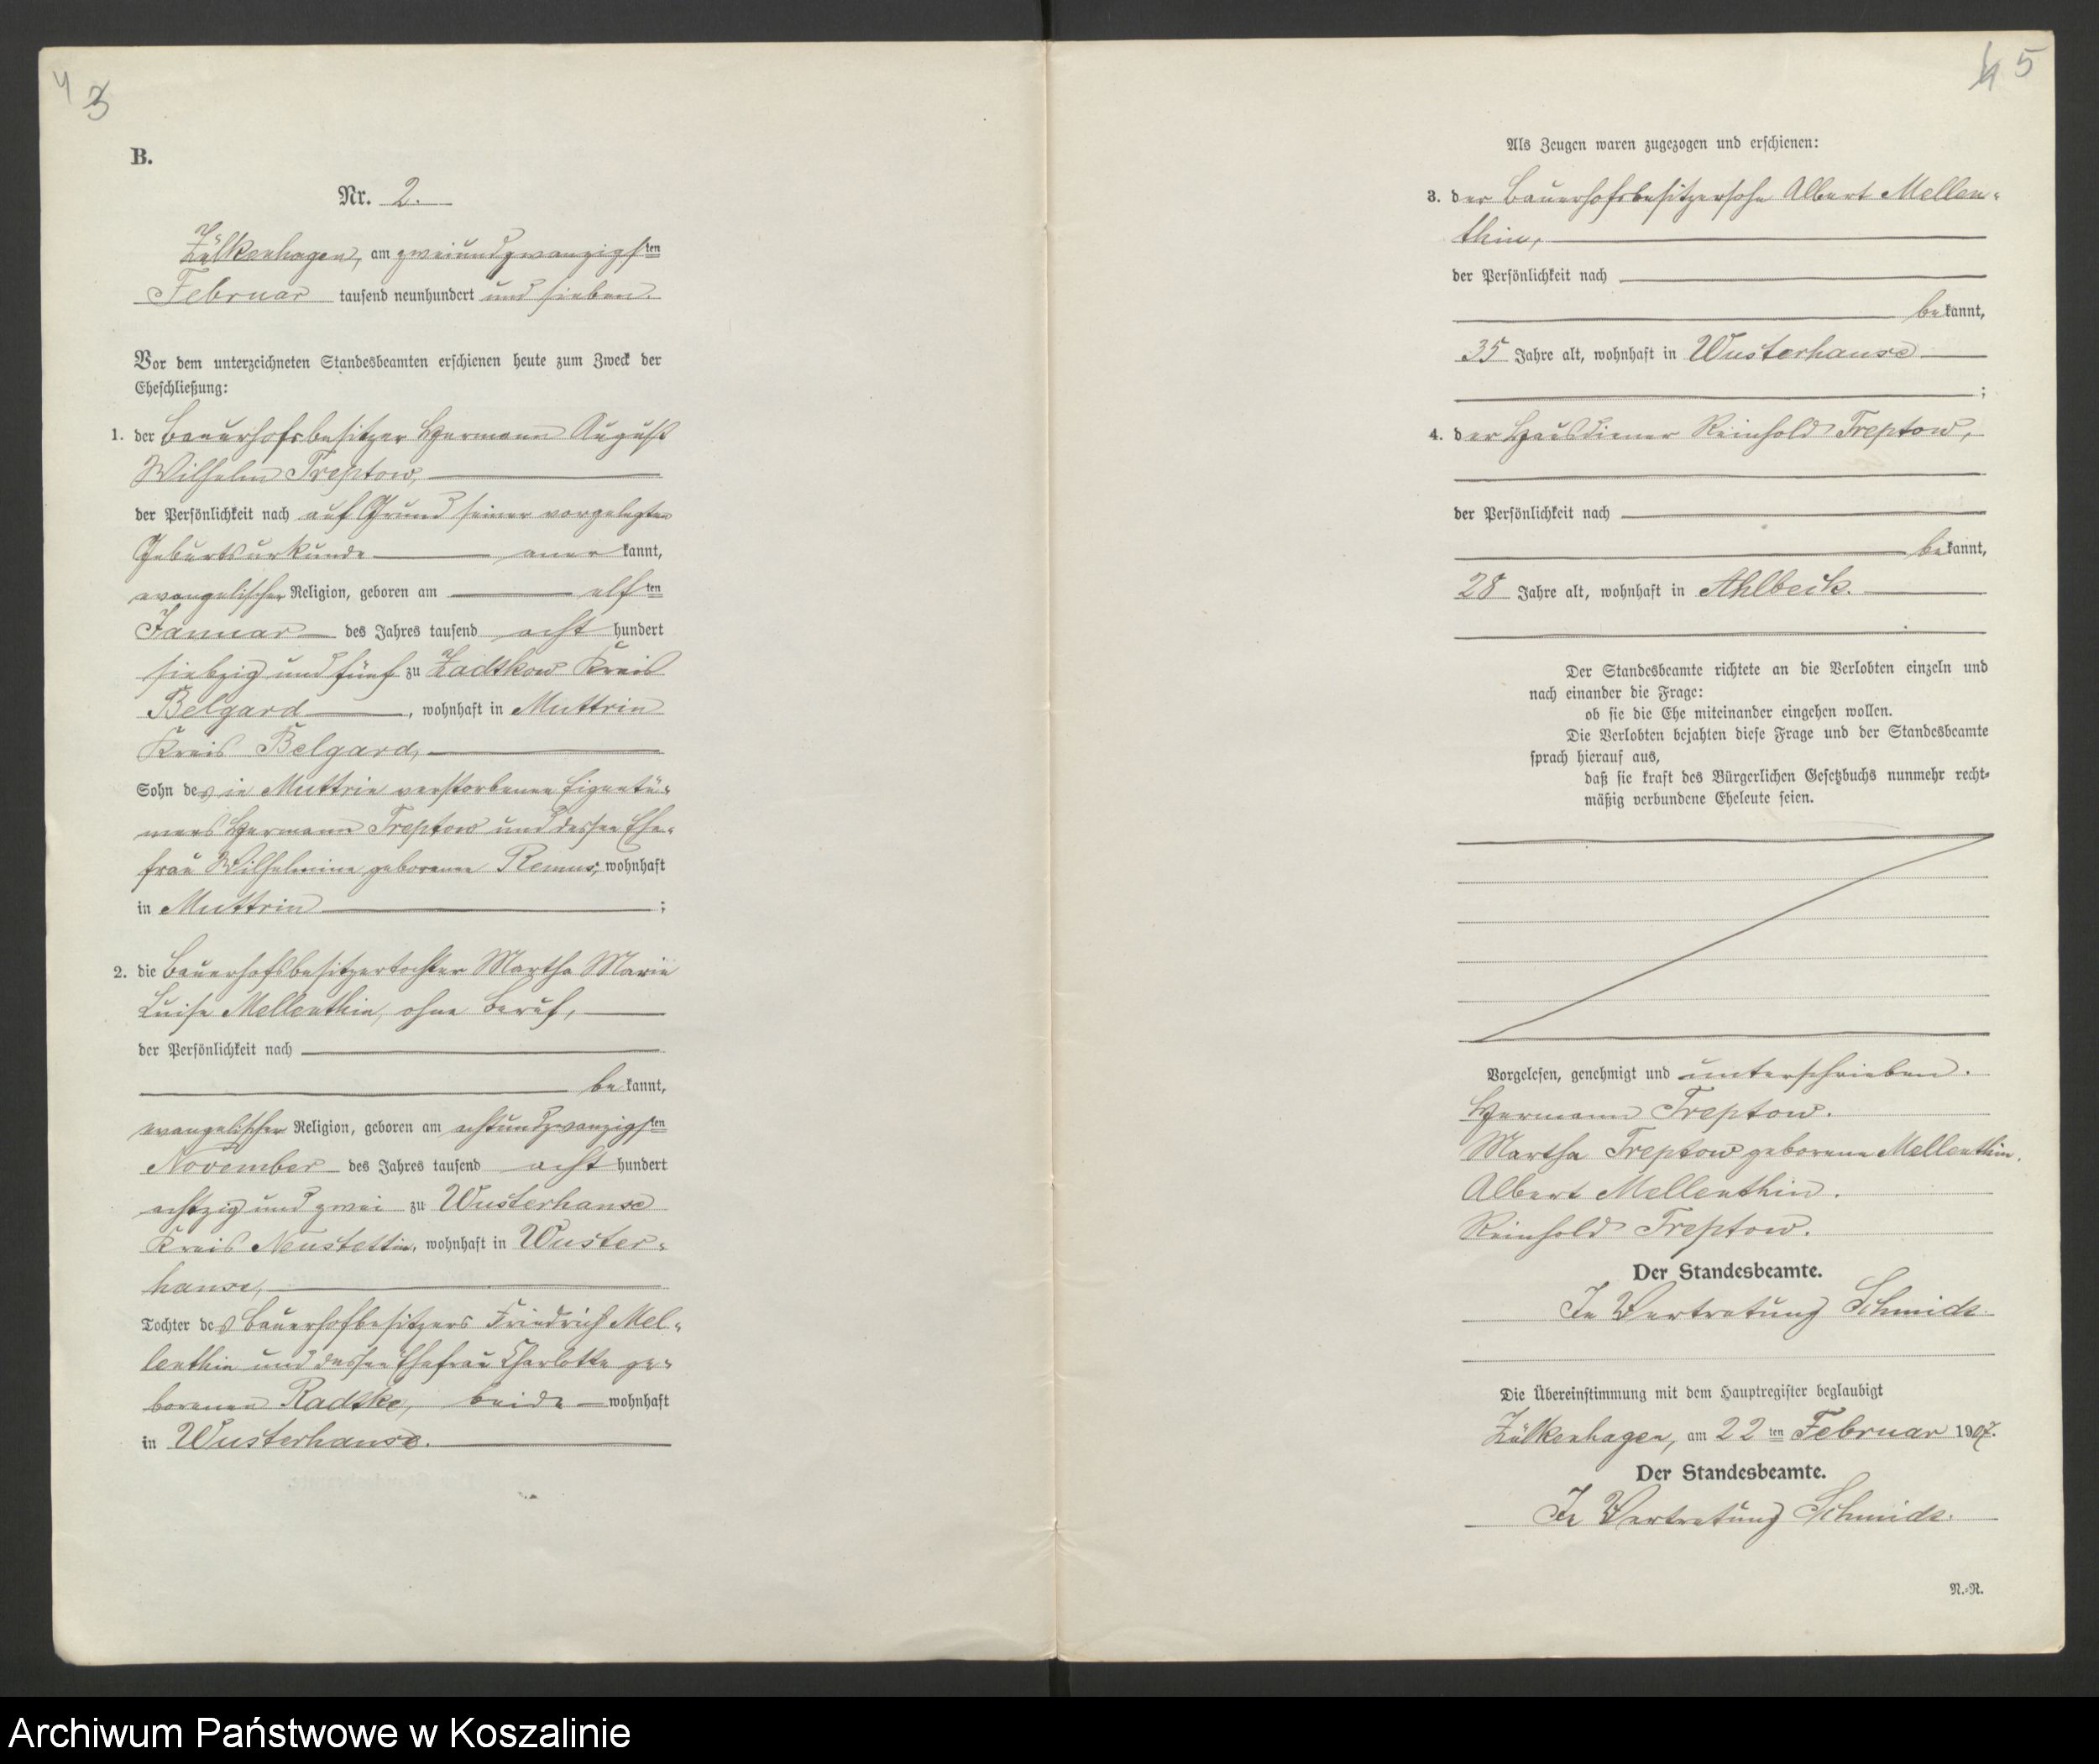 4 3
B.
Nr. 2.
Zülkenhagen, am zweiundzwanzigsten
Februar tausend neunhundert und sieben.
Vor dem unterzeichneten Standesbeamten erschienen heute zum Zweck der
Eheschließung:
1. der Bauerhofsbesitzer Hermann August
Wilhelm Treptow,
der Persönlichkeit nach auf Grund seiner vorgelegten
Geburtsurkunde anerkannt,
evangelischer Religion, geboren am elften
Januar des Jahres tausend acht hundert
siebzig und fünf zu Zadtkow Kreis
Belgard, wohnhaft in Muttrin
Kreis Belgard,
Sohn des in Muttrin verstorbenen Eigentü-
mers Hermann Treptow und dessen Ehe-
frau Wilhelmine geborenen Remus, wohnhaft
in Muttrin;
2. die Bauerhofsbesitzertochter Martha Marie
Luise Mellenthin, ohne Beruf,
der Persönlichkeit nach
bekannt,
evangelischer Religion, geboren am achtundzwanzigsten
November des Jahres tausend acht hundert
achtzig und zwei zu Wusterhanse
Kreis Neustettin, wohnhaft in Wuster-
hanse,
Tochter des Bauerhofbesitzers Friedrich Mel-
lenthin und dessen Ehefrau Charlotte ge-
borenen Radtke, beide wohnhaft
in Wusterhanse.
4 5
Als Zeugen waren zugezogen und erschienen:
3. der Bauerhofsbesitzersohn Albert Mellen-
thin,
der Persönlichkeit nach
bekannt,
35 Jahre alt, wohnhaft in Wusterhanse
;
4. der Hausdiener Reinhold Treptow,
der Persönlichkeit nach
bekannt,
28 Jahre alt, wohnhaft in Ahlbeck.
Der Standesbeamte richtete an die Verlobten einzeln und
nach einander die Frage:
ob sie die Ehe miteinander eingehen wollen.
Die Verlobten bejahten diese Frage und der Standesbeamte
sprach hierauf aus,
daß sie kraft des Bürgerlichen Gesetzbuchs nunmehr recht-
mäßig verbundene Eheleute seien.
Vorgelesen, genehmigt und unterschrieben.
Hermann Treptow.
Martha Treptow geborene Mellenthin.
Albert Mellenthin.
Reinhold Treptow.
Der Standesbeamte.
In Vertretung Schmidt.
Die Übereinstimmung mit dem Hauptregister beglaubigt
Zülkenhagen, am 22ten Februar 1907.
Der Standesbeamte.
In Vertretung Schmidt.
N.-R.
Archiwum Państwowe w Koszalinie